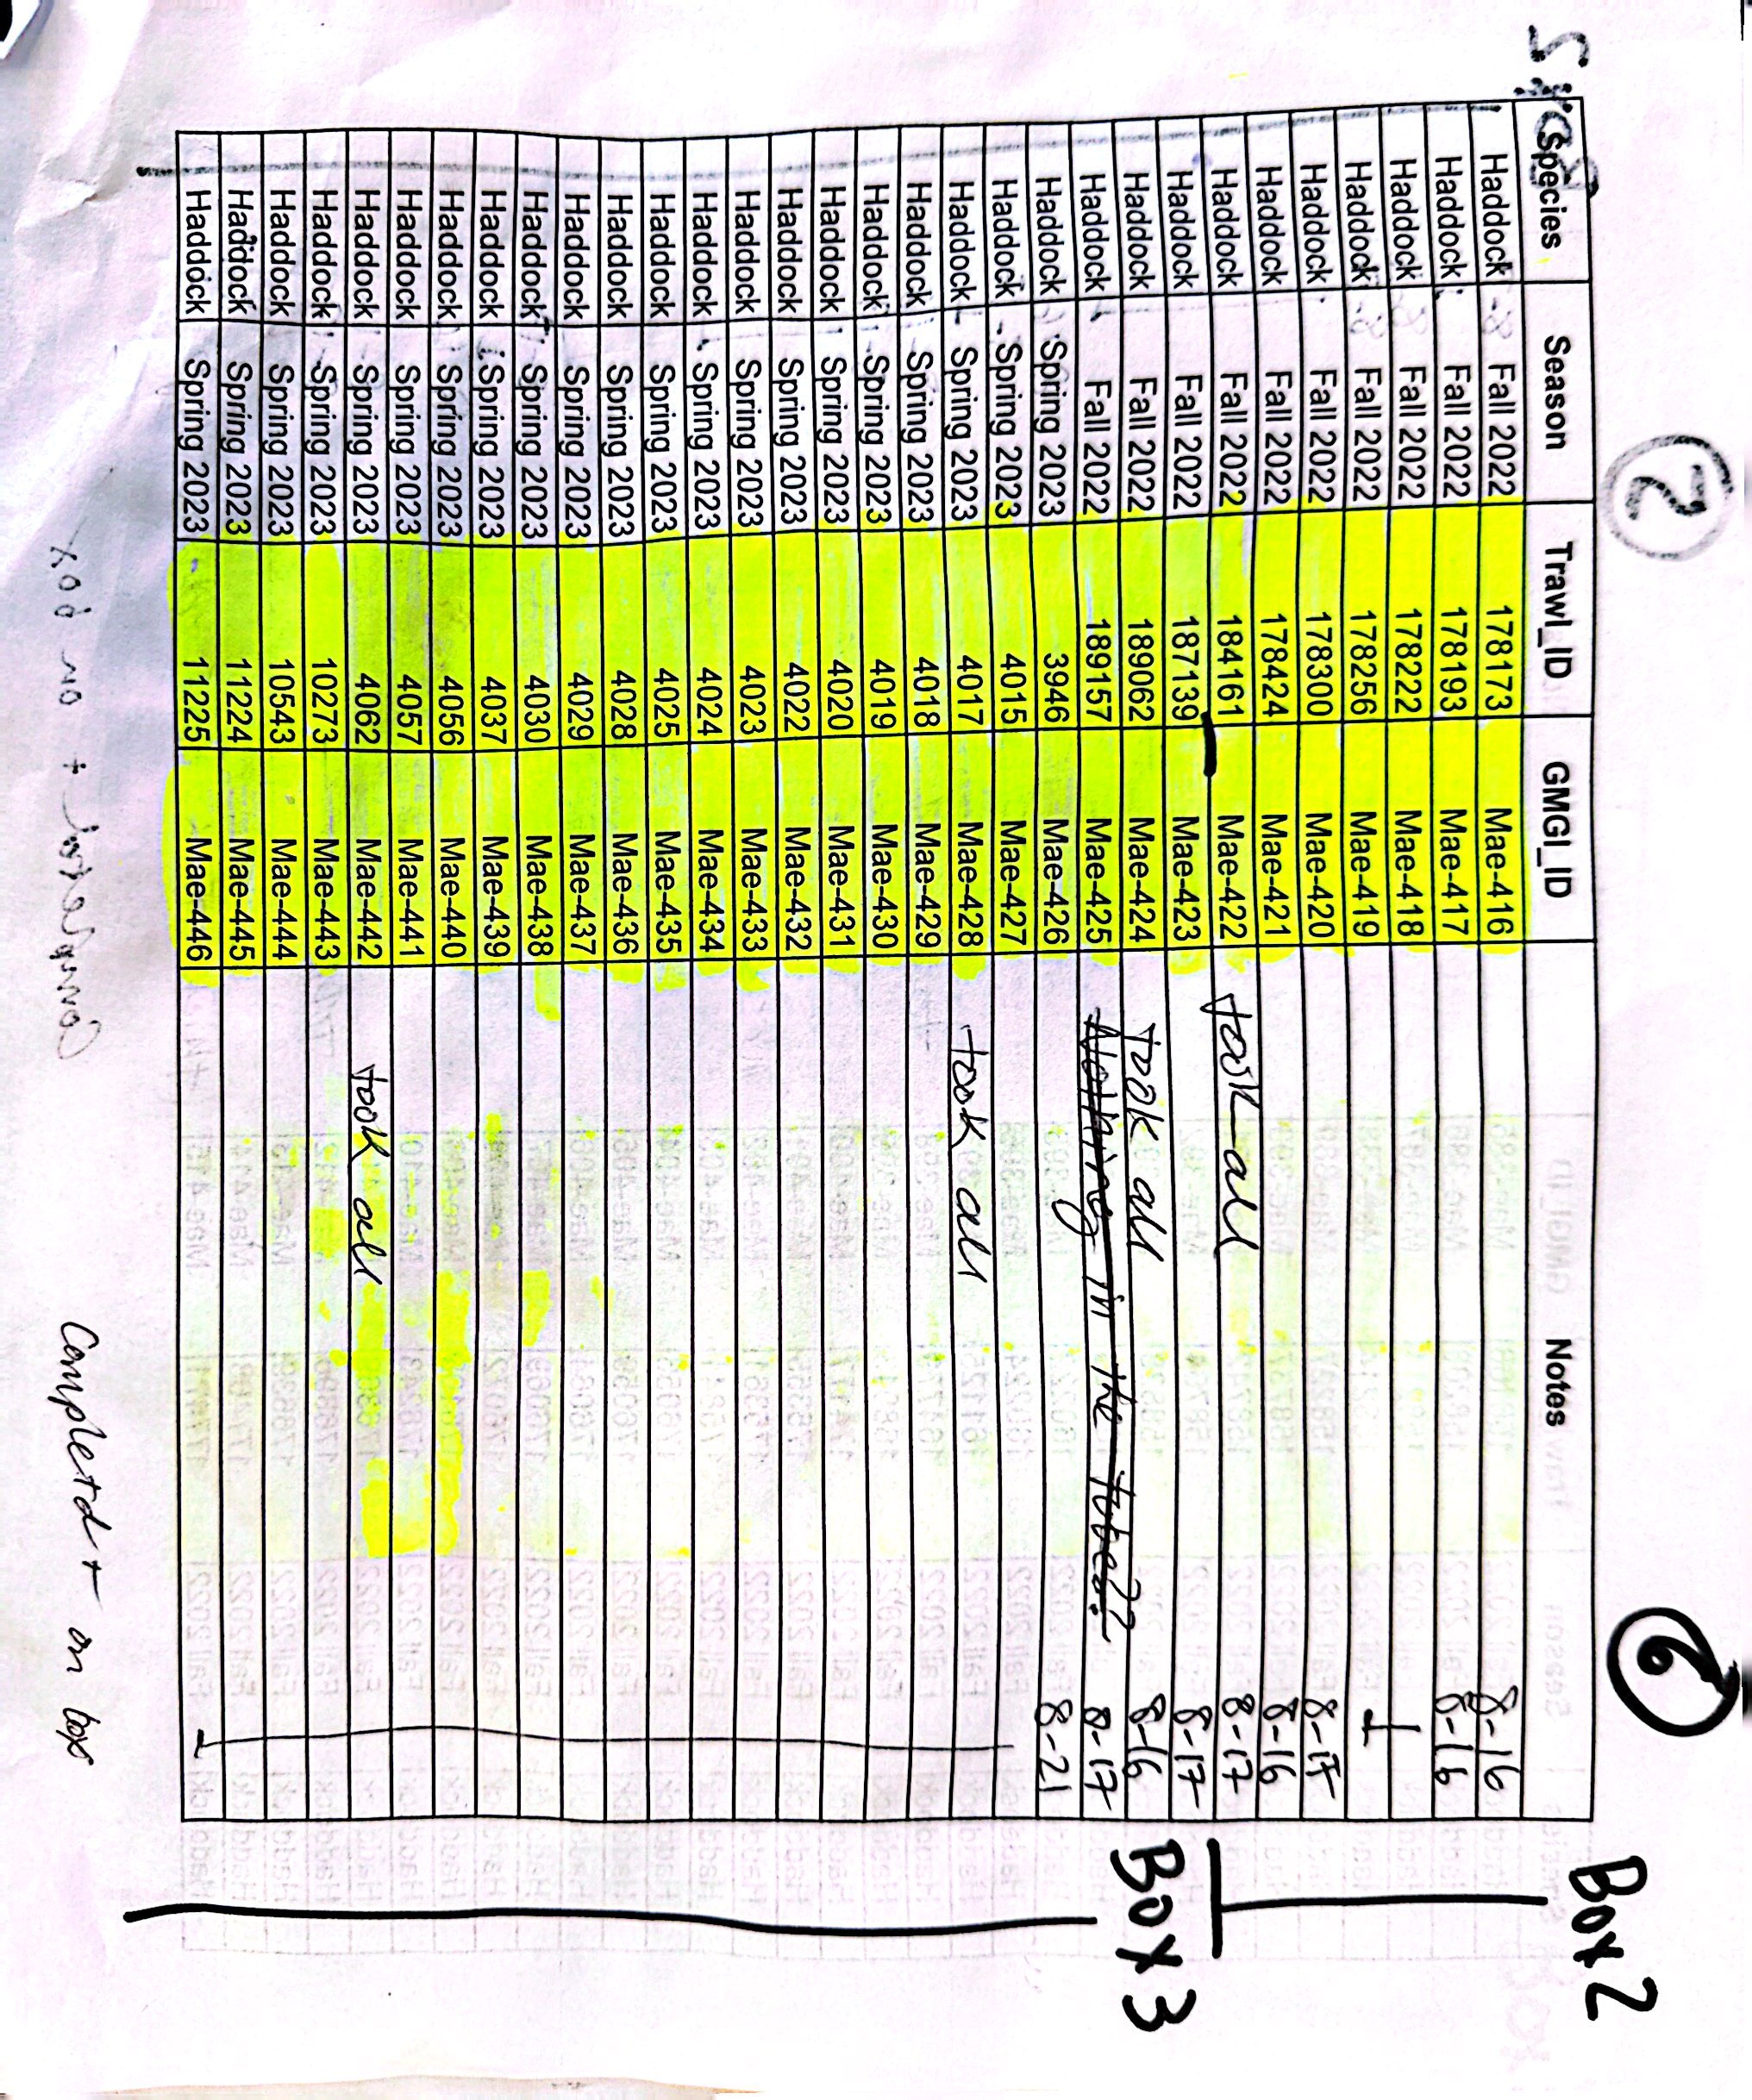 6
Species Season Trawl_ID GMGI_ID Notes Box 2
Haddock Fall 2022 178173 Mae-416 8-16
Haddock Fall 2022 178193 Mae-417 8-16
Haddock Fall 2022 178222 Mae-418
Haddock Fall 2022 178256 Mae-419
Haddock Fall 2022 178300 Mae-420 8-17
Haddock Fall 2022 178424 Mae-421 8-16
Haddock Fall 2022 184161 Mae-422 took all 8-17
Haddock Fall 2022 187139 Mae-423 8-17 Box 3
Haddock Fall 2022 189062 Mae-424 took all 8-16
Haddock Fall 2022 189157 Mae-425 Nothing in the tubes?? 8-17
Haddock Spring 2023 3946 Mae-426 8-21
Haddock Spring 2023 4015 Mae-427
Haddock Spring 2023 4017 Mae-428 took all
Haddock Spring 2023 4018 Mae-429
Haddock Spring 2023 4019 Mae-430
Haddock Spring 2023 4020 Mae-431
Haddock Spring 2023 4022 Mae-432
Haddock Spring 2023 4023 Mae-433
Haddock Spring 2023 4024 Mae-434
Haddock Spring 2023 4025 Mae-435
Haddock Spring 2023 4028 Mae-436
Haddock Spring 2023 4029 Mae-437
Haddock Spring 2023 4030 Mae-438
Haddock Spring 2023 4037 Mae-439
Haddock Spring 2023 4056 Mae-440
Haddock Spring 2023 4057 Mae-441
Haddock Spring 2023 4062 Mae-442 took all
Haddock Spring 2023 10273 Mae-443
Haddock Spring 2023 10543 Mae-444
Haddock Spring 2023 11224 Mae-445
Haddock Spring 2023 11225 Mae-446
Completed + on box